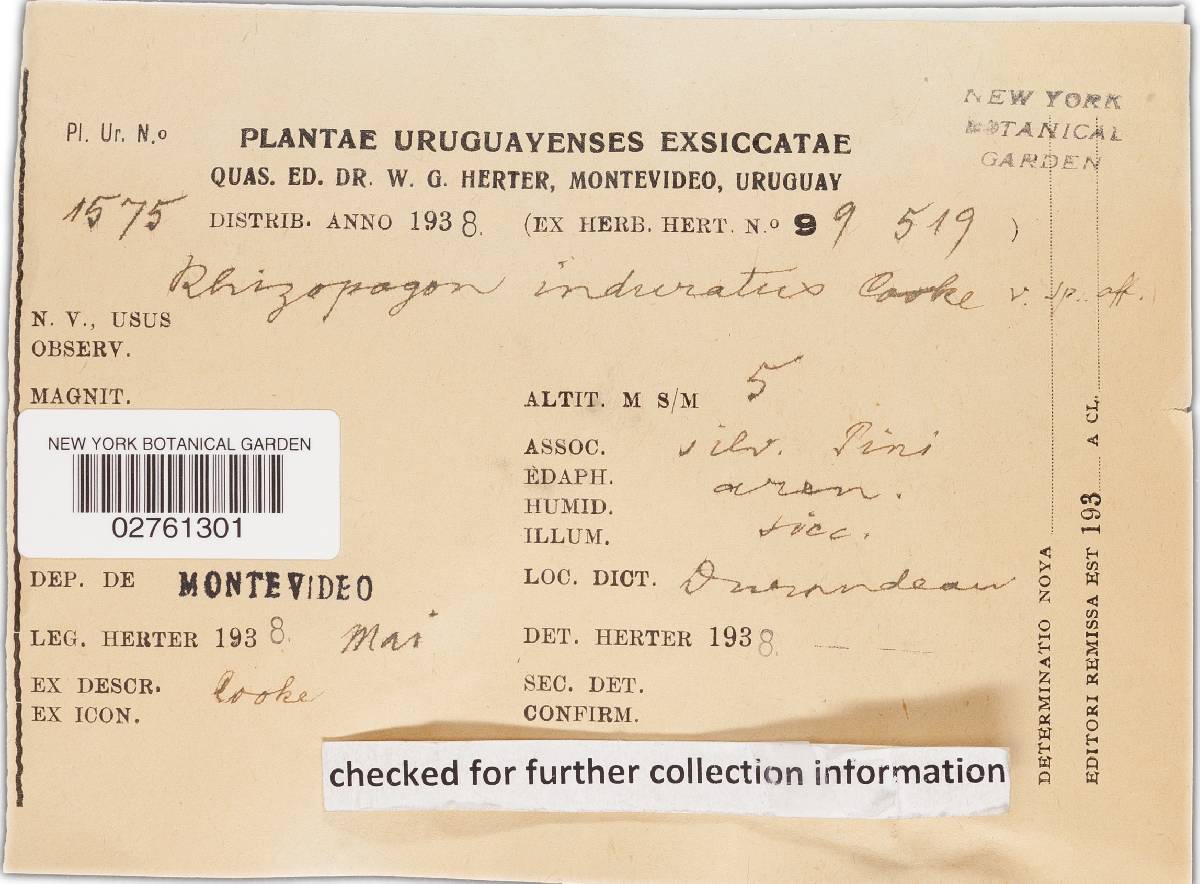 NEW YORK
BOTANICAL
GARDEN
Pl. Ur. N.o
PLANTAE URUGUAYENSES EXSICCATAE
QUAS. ED. DR. W. G. HERTER, MONTEVIDEO, URUGUAY
1575 DISTRIB. ANNO 1938. (EX HERB. HERT. N.o 99 519 )
Rhizopogon induratus Cooke v. sp. aff.
N. V., USUS
OBSERV.
MAGNIT.
ALTIT. M S/M 5
ASSOC. silv. Pini
EDAPH. aren.
HUMID. sicc.
ILLUM.
NEW YORK BOTANICAL GARDEN
02761301
DEP. DE MONTEVIDEO
LOC. DICT.
LEG. HERTER 1938. Mai
DET. HERTER 1938.
EX DESCR. Cooke
EX ICON.
SEC. DET.
CONFIRM.
checked for further collection information
DETERMINATIO NOVA
EDITORI REMISSA EST 193 A CL.